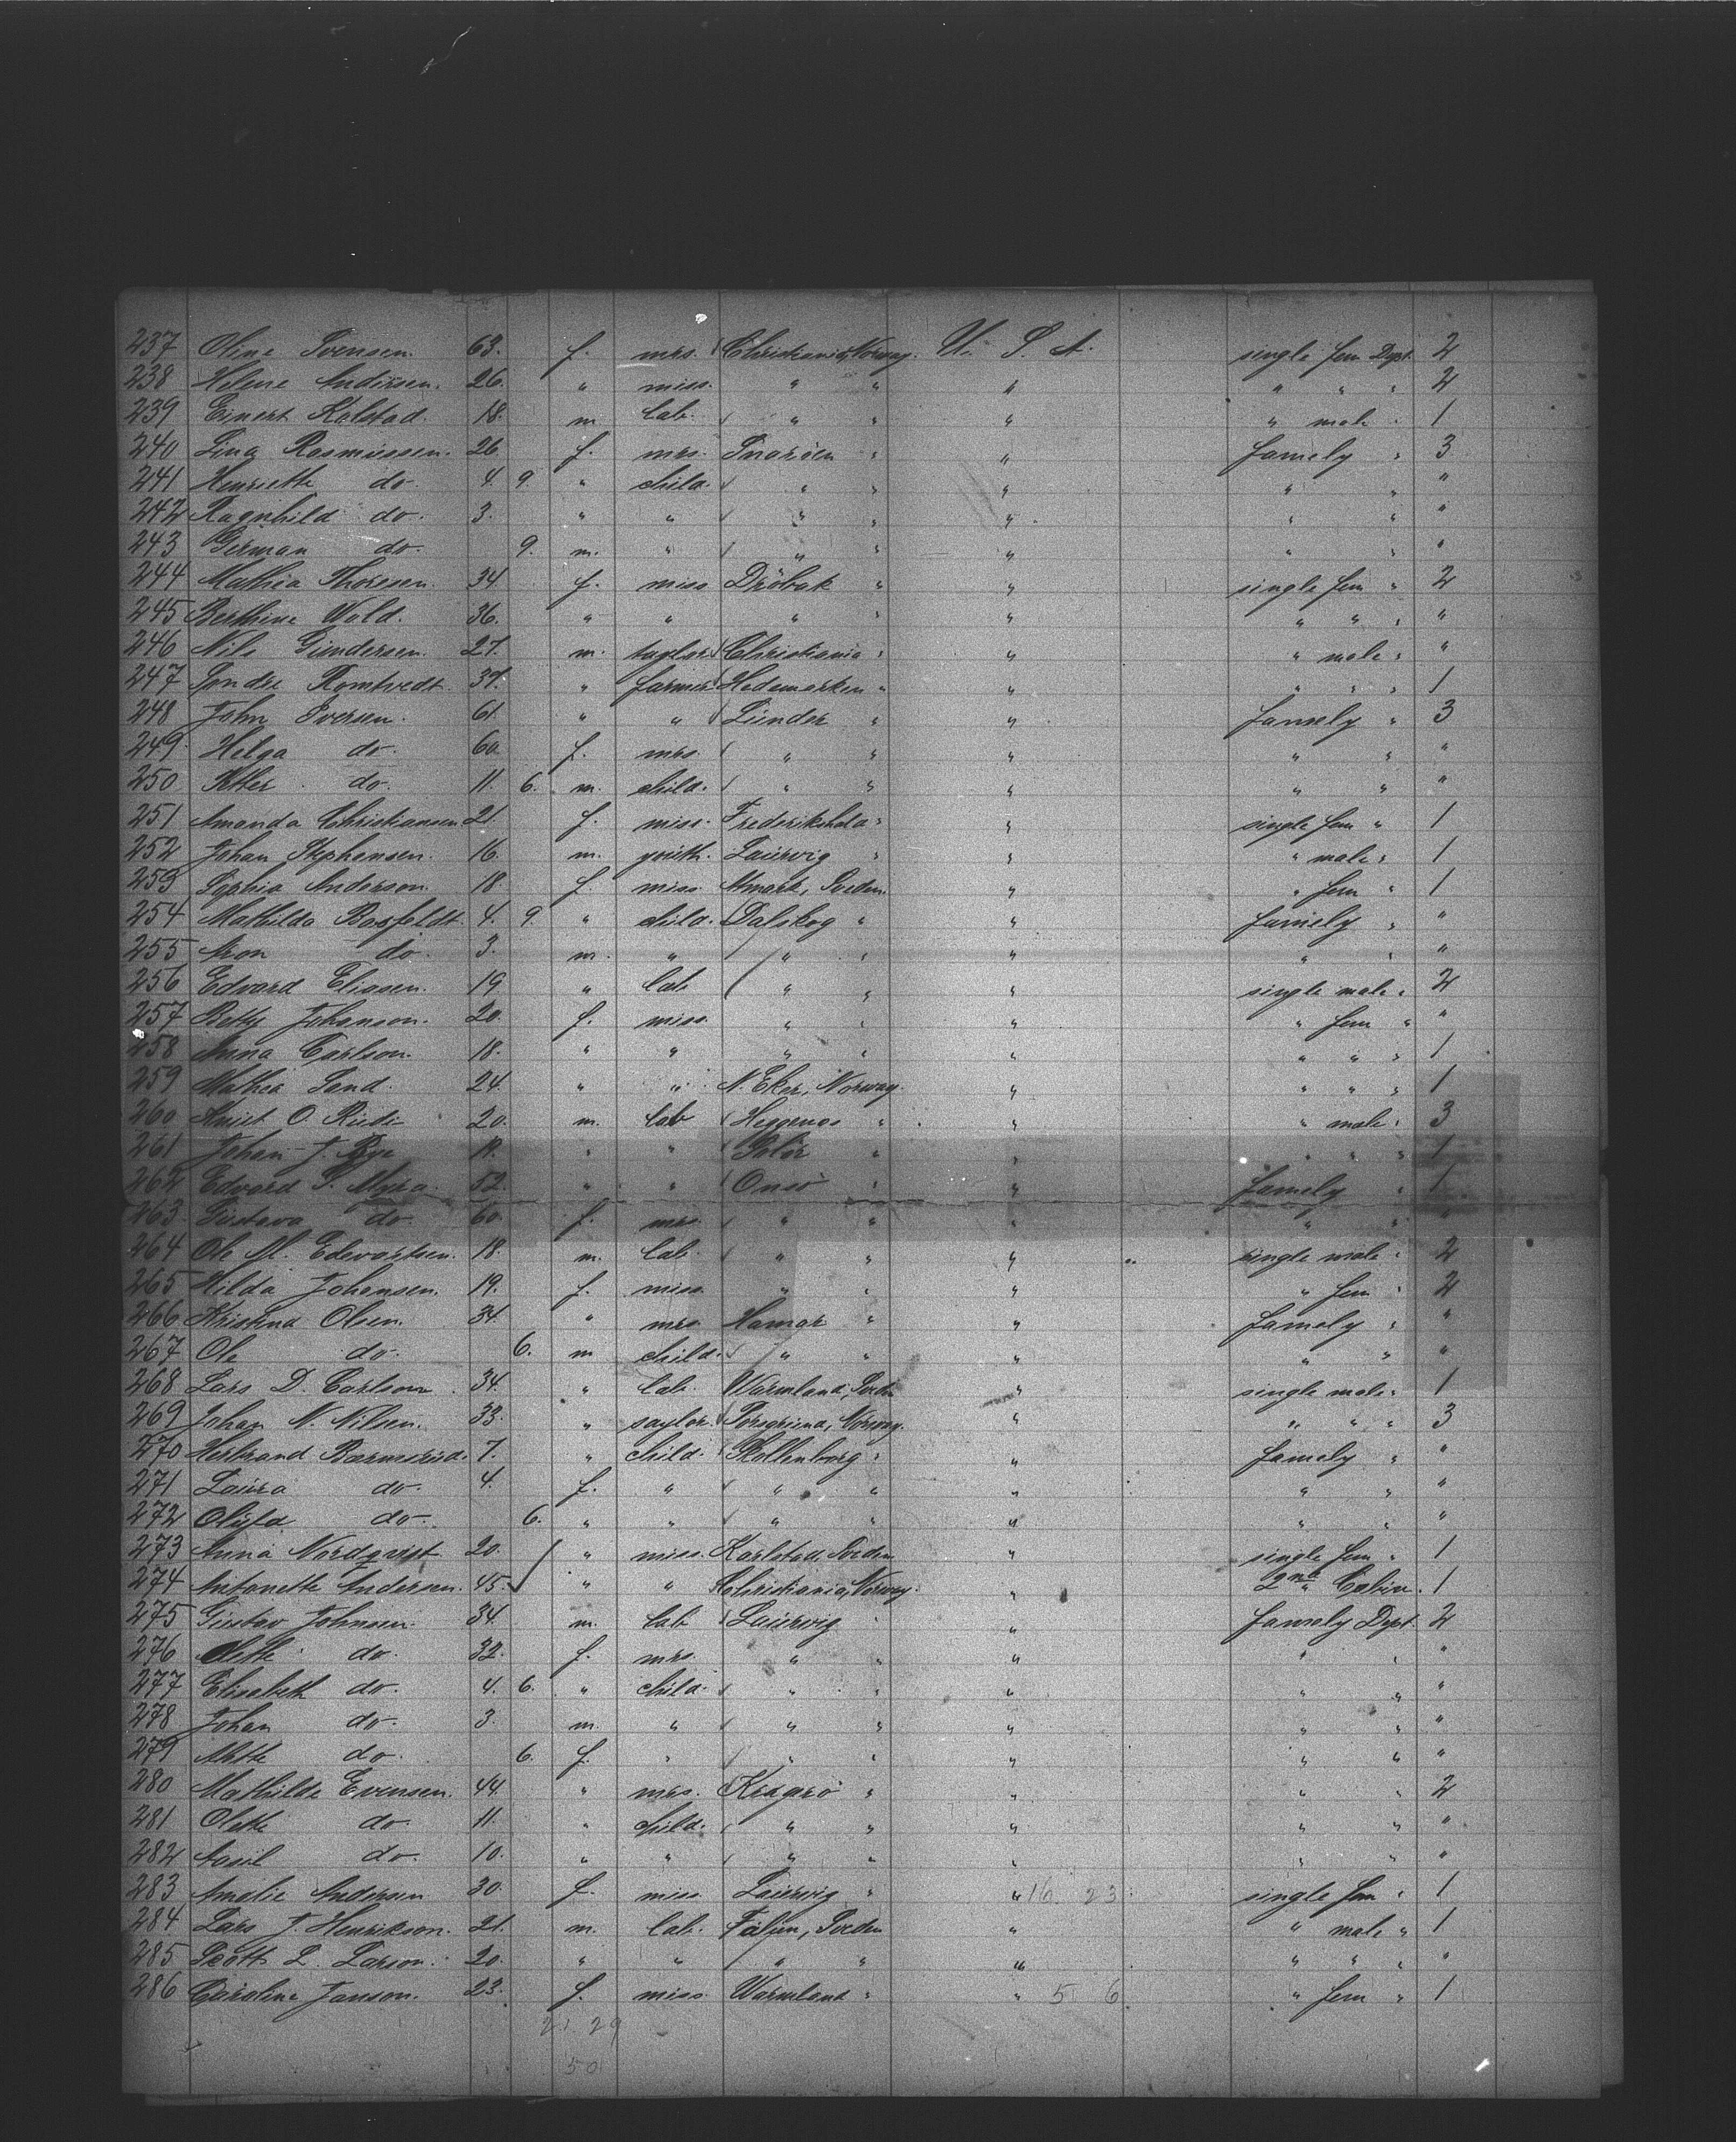 237 Oline Svensen. 63. f. mrs. Christiania, Norway. U. S. A. single fem Dept. 2
238 Helene Andersen. 26. " miss. " " " " " " 2
239 Einert Kolstad. 18. m. lab. " " " " male " 1
240 Lina Rasmussen. 26 f. mrs. Snaröen " " famely " 3
241 Henriette do. 4. 9. " child. " " " " " "
242 Ragnhild do. 3. " " " " " " " "
243 German do. 9. m. " " " " " " "
244 Mathea Thoresen. 34 f. miss Dröbak " " single fem " 2
245 Berthine Wold. 36. " " " " " " " " "
246 Nils Gundersen. 27. m. taylor Christiania " " " male " "
247 Sondre Romtvedt. 37. " farmer Hedemarken " " " " " 1
248 John Iversen. 61. " " Lunder " " famely " 3
249. Helga do. 60 f. mrs. " " " " " "
250 Petter do. 11. 6. m. child. " " " " " "
251 Amanda Christiansen 21. f. miss. Frederikshald " " single fem " 1
252 Johan Stephansen. 16. m. youth. Laurvig " " " male " 1
253 Sophia Anderson. 18. f. miss. Åmark, Sveden. " " fem " 1
254 Mathilda Bosfeldt. 4. 9. " child. Dalskog " " famely " "
255 Aron do. 3. m. " " " " " " "
256 Edvard Eliasen. 19 " lab " " " single male " 2
257 Betty Johanson. 20. f. miss. " " " " fem " "
258 Anna Carlson. 18. " " " " " " " " 1
259 Mathea Sand. 24. " " N. Eker, Norway. " " " " 1
260 Knut O. Rudi 20. m. lab Heggenes " " " male " 3
261 Johan J. Bye 19. " " Solör " " " " " 1
262 Edvard S. Myra. 52. " " Onsö " " famely " 1
263. Gustava do. 60 f. mrs. " " " " " "
264 Ole M. Edevartsen. 18. m. lab. " " " single male " 2
265 Hilda Johansen. 19. f. miss. " " " " fem " 2
266 Kristina Olsen. 34. " mrs. Hamar " " famely " "
267 Ole do. 6. m child. " " " " " "
268 Lars D. Carlson. 34. " lab. Warmland, Sveden " single male " 1
269 Johan N. Nilsen. 33. " saylor. Norway. " " " " 3
270 Herbrand 7. " child. Skollenborg " " famely " "
271 Laura do. 4. f. " " " " " " "
272 Olufa do. 6. " " " " " " " "
273 Anna Nordqvist 20. " miss. Karlstad, Sveden " single fem " 1
274 Antonette Andersen. 45. " " Christiania, Norway. " 2nd Cabin. 1
275 Gustav Johnsen. 34 m. lab Laurvig " " famely Dept. 2
276 do. 32. f. mrs. " " " " " "
277 Elisabeth do. 4. 6. " child. " " " " " "
278 Johan do. 3. m. " " " " " " "
279 Mette do. 6. f. " " " " " " "
280 Mathilde Evensen. 44. " mrs. Kragerö " " " " 2
281 Olette do. 11. " child. " " " " " "
282 Aasil do. 10. " " " " " " " "
283 Amalie Andersen 30. f. miss. Laurvig " " 16 23 single fem " 1
284 Lars J. Henrikson. 21. m. lab. Falun, Sveden " " male " 1
285 Scott L. Larson. 20. " " " " " " " " "
286 Caroline Janson. 23. f. miss. Warmland " " 5 6 " fem " 1
21. 29
50